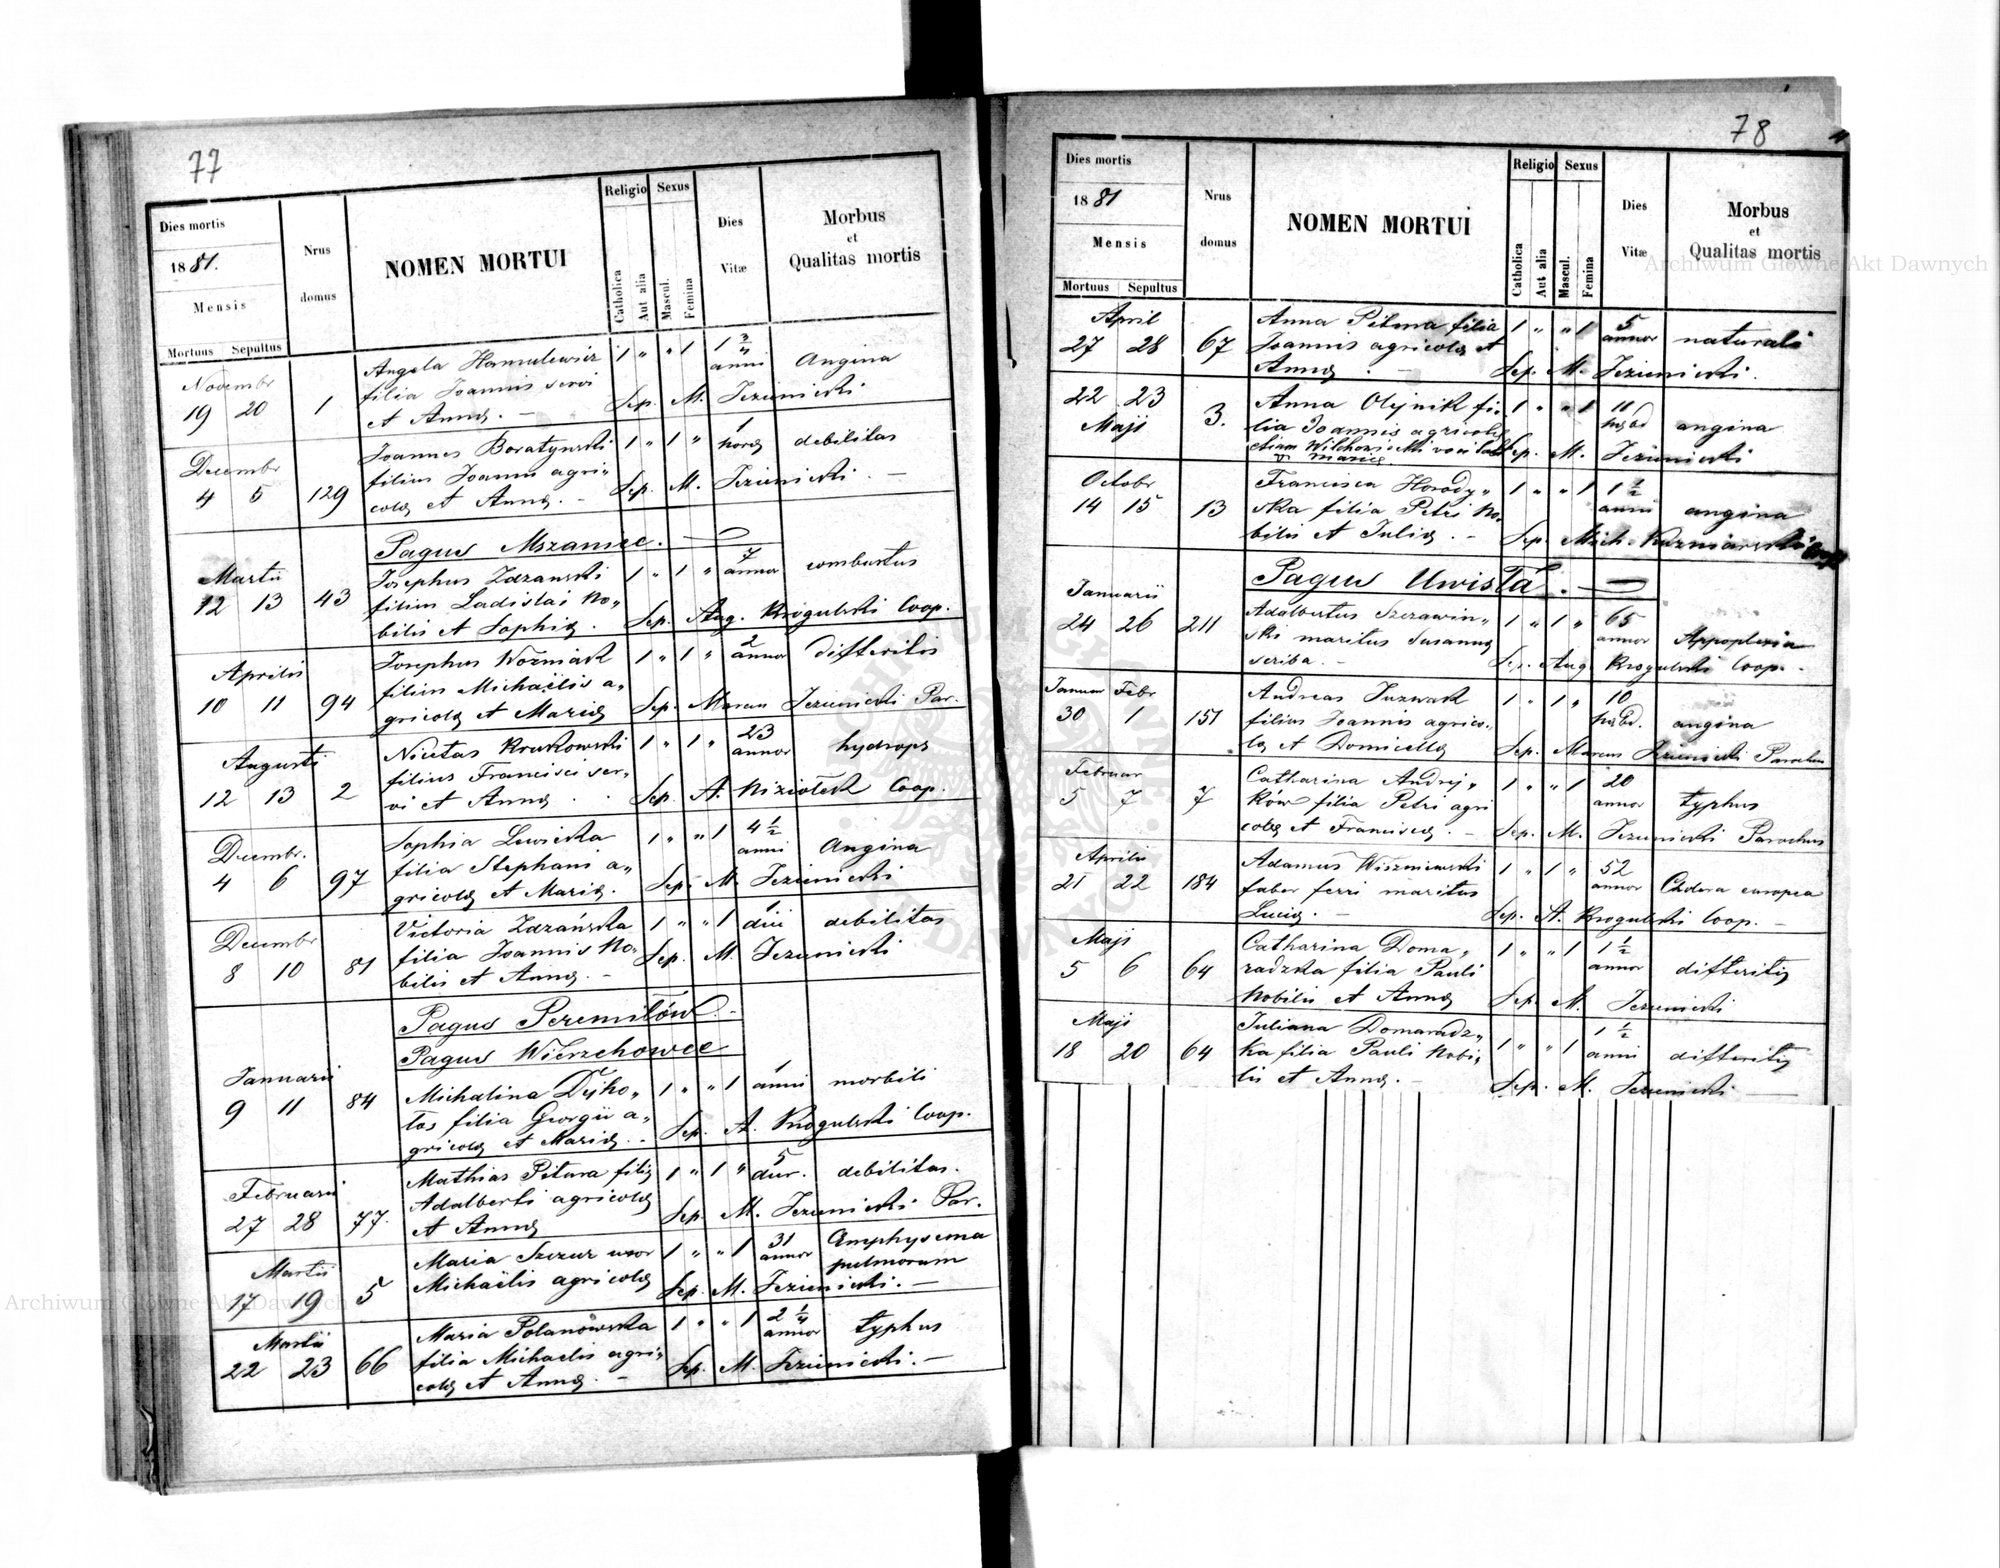 77
Dies mortis
1881.
Mensis
Mortuus Sepultus
Nrus domus
NOMEN MORTUI
Religio
Catholica
Aut alia
Sexus
Mascul.
Femina
Dies Vitæ
Morbus
et
Qualitas mortis
Novembr
19 20 1
Angela Hamulewicz 1 " " 1 1 3/4 anni Angina
filia Joannis servi
et Annæ. – Sep. M. Jezienicki
Decembr
4 5 129
Joannes Boratynski 1 " 1 " 1 horæ debilitas
filius Joannis agri„
colæ et Annæ. – Sep. M. Jezienicki –
Pagus Mszaniec.
Martii
12 13 43
Josephus Zdzanski 1 " 1 " 7 annor combustus
filius Ladislai No„
bilis et Sophiæ. Sep. Aug. Rrogulski Coop.
Aprilis
10 11 94
Josephus Wozniak 1 " 1 " 2 annor difteritis
filius Michaëlis a„
gricolæ et Mariæ Sep. Marcus Jezienicki Par.
Augusti
12 13 2
Nicetas Krukowski 1 " 1 " 23 annor hydrops
filius Francisci ser„
vi et Annæ . . Sep. A. Niziołek Coop.
Decembr.
4 6 97
Sophia Lewicka 1 " " 1 4 1/2 anni Angina
filia Stephani a„
gricolæ et Mariæ. Sep. M. Jezienicki
Decembr
8 10 81
Victoria Zdzańska 1 " " 1 1 diei debilitas
filia Joannis No„
bilis et Annæ. – Sep. M. Jezienicki
Pagus Peremiłów. –
Pagus Wierzchowce
Januarii
9 11 84
Michalina Dyho„ 1 " " 1 1 anni morbili
tos filia Georgii a„
gricolæ et Mariæ. – Sep. A. Krogulski Coop.
Februarii
27 28 77.
Mathias Pitura filiæ 1 " 1 " 5 dier. debilitas.
Adalberti agricolæ
et Annæ Sep. M. Jezienicki Par.
Martii
17 19 5
Maria Szczur uxor 1 " " 1 31 annor Emphysema
Michaëlis agricolæ pulmorum
Sep. M. Jezienicki. –
Martii
22 23 66
Maria Polanowska 1 " " 1 2 1/4 annor typhus
filia Michaelis agri„
colæ et Annæ. – Sep. M. Jezienicki. –
78
Dies mortis
1881
Mensis
Mortuus Sepultus
Nrus domus
NOMEN MORTUI
Religio
Catholica
Aut alia
Sexus
Mascul.
Femina
Dies Vitæ
Morbus
et
Qualitas mortis
April
27 28 67
Anna Pitura filia 1 " " 1 5 annor naturali
Joannis agricolæ et
Annæ . – Sep. M. Jezienicki.
22 23 3.
Maji
Anna Olejnik fi„ 1 " " 1 11 hebd angina
lia Joannis agricolæ
etiam Sep. M. Jezienicki
Mariæ
Octobr
14 15 13
Francisca Horody„ 1 " " 1 1 1/2 anni angina
ska filia Petri No„
bilis et Juliæ. – Sep. Mich. Kuzniarski
Pagus Uwisła. –
Januarii
24 26 211
Adalbertus Szerawin„ 1 " 1 " 65 annor Appoplexia
ski maritus Susannæ
scriba. – Sep. Aug. Krogulski Coop. –
Januar Febr
30 1 151
Andreas Juzwak 1 " 1 " 10 hebd. angina
filius Joannis agrico„
læ et Domicellæ Sep. Marcus Jezienicki Parochus
Februar
5 7 7
Catharina Andrej„ 1 " " 1 20 annor typhus
ków filia Petri agri
colæ et Franciscæ. – Sep. M. Jezienicki Parochus
Aprilis
21 22 184
Adamus Wiszniewski 1 " 1 " 52 annor Cholera europea
faber ferri maritus
Luciæ. – Sep. A. Krogulski Coop. –
Maji
5 6 64
Catharina Doma„ 1 " " 1 1 1/2 annor difteritis
radzka filia Pauli
Nobilis et Annæ Sep. M. Jezienicki
Maji
18 20 64
Juliana Domaradz„ 1 " " 1 1 1/2 anni difteritis
ka filia Pauli Nobi„
lis et Annæ. – Sep. M. Jezienicki –
Archiwum Główne Akt Dawnych
Archiwum Główne Akt Dawnych
ARCHIWUM GŁÓWNE AKT DAWNYCH